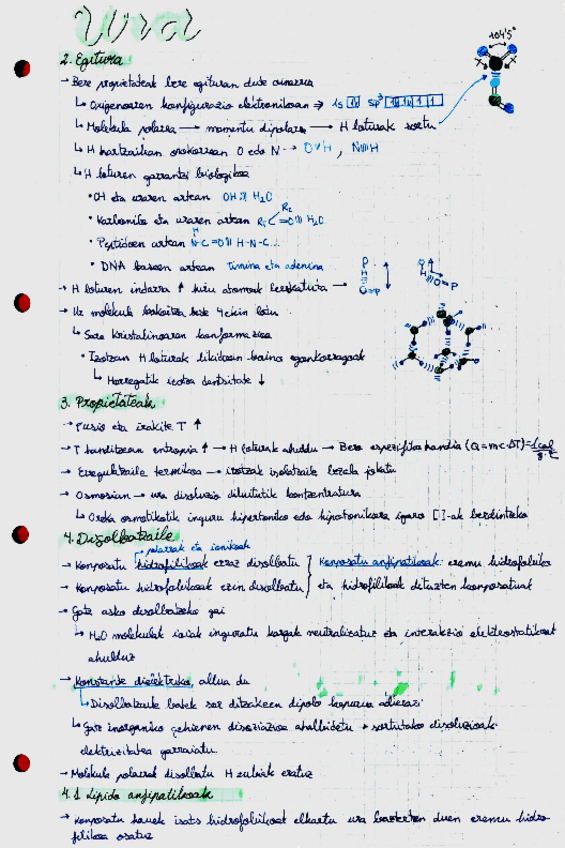 Ura
2. Egitura
→ Bere propietateak bere egituran dute oinarria
↳ Oxigenoaren konfigurazio elektronikoan ⇒ 1s [1↓] sp³ [1↓|1↓|1|1]
104'5°
↳ Molekula polarra → momentu dipolarra → H loturak sortu
↳ H hartzailean orokorrean O edo N → O|||H , N|||H
↳ H loturen garrantzi biologikoa
• OH eta uraren artean OH ||| H₂O
• Karbonilo eta uraren artean R₁ C=O ||| H₂O R₂
• Peptidoen artean N-C=O ||| H-N-C... H
• DNA baseen artean timina eta adenina
→ H loturen indarra ↑ hiru atomoak lerrokatuta →
→ Ur molekula bakoitza beste 4ekin lotu
↳ Sare kristalinoaren konformazioa
• Izotzan H loturak likidoan baino egonkorragoak
↳ Horregatik izotza dentsitate ↓
3. Propietateak
→ Fusio eta irakite T ↑
→ T handitzean entropia ↑ → H loturak ahuldu → Bero espezifiko handia (Q=mc·ΔT)=1cal/g·ºC
→ Erregulatzaile termikoa → izotzak isolatzaile bezala jokatu
→ Osmosian → ura disoluzio diluitutik kontzentratura
↳ Oreka osmotikotik inguru hipertoniko edo hipotonikora igaro [ ]-ak berdintzeko
4. Disolbatzaile
→ polarrak eta ionikoak
→ Konposatu hidrofilikoak erraz disolbatu } Konposatu anfipatikoak: eremu hidrofobiko
→ Konposatu hidrofobikoak ezin disolbatu } eta hidrofilikoak dituzten konposatuak
→ Gatz asko disolbatzeko gai
↳ H₂O molekulak ioiak inguratu kargak neutralizatuz eta interakzio elektrostatikoak
ahulduz
→ Konstante dielektriko altua du
↳ Disolbatzaile batek sor ditzakeen dipolo kopurua adierazi
↳ Gatz inorganiko gehienen disoziazioa ahalbidetu → sortutako disoluzioak
elektrizitatea garraiatu
→ Molekula polarrak disolbatu H zubiak eratuz
4.1 Lipido anfipatikoak
→ Konposatu hauek isats hidrofobikoak elkartu ura baztertzen duen eremu hidro-
fobikoa osatuz